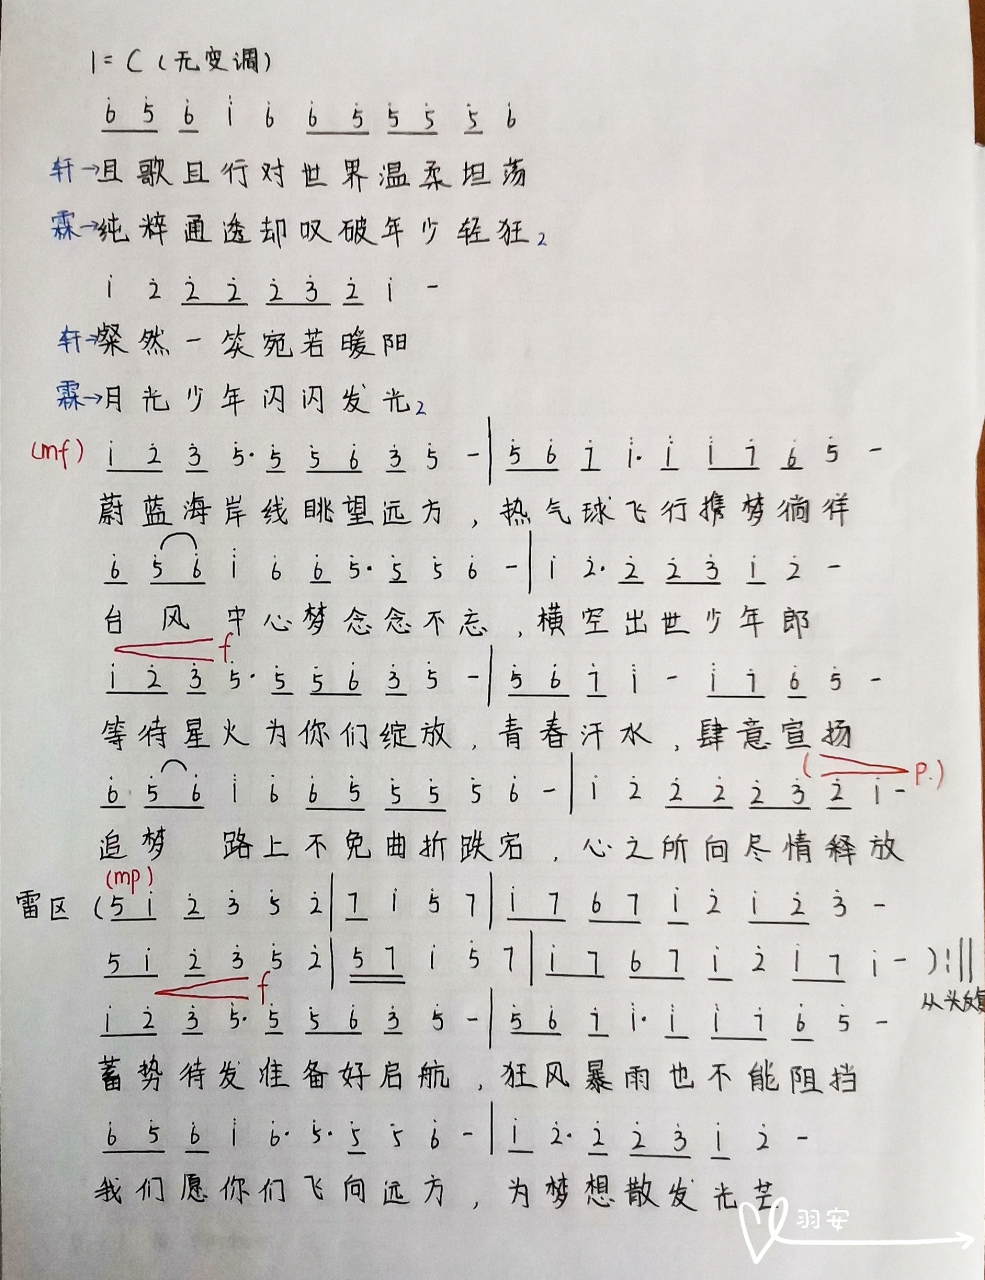 1=C(无变调)
6̇ 5̇ 6̇ i 6̇ 6̇ 5̇ 5̇ 5̇ 5̇ 6̇
轩→且歌且行对世界温柔坦荡
霖→纯粹通透却叹破年少轻狂。
i 2̇ 2̇ 2̇ 2̇ 3̇ 2̇ i -
轩→粲然一笑宛若暖阳
霖→月光少年闪闪发光。
(mf) i 2̇ 3̇ 5̇· 5̇ 5̇ 6̇ 3̇ 5̇ -| 5̇ 6̇ 7̇ i· i i 7̇ 6̇ 5̇ -
蔚蓝海岸线眺望远方,热气球飞行携梦徜徉
6̇ 5̇ 6̇ i 6̇ 6̇ 5̇· 5̇ 5̇ 6̇ -| i 2̇· 2̇ 2̇ 3̇ i 2̇ -
台风中心梦念念不忘,横空出世少年郎
f
i 2̇ 3̇ 5̇· 5̇ 5̇ 6̇ 3̇ 5̇ -| 5̇ 6̇ 7̇ i - i 7̇ 6̇ 5̇ -
等待星火为你们绽放,青春汗水,肆意宣扬
( p.)
6̇ 5̇ 6̇ i 6̇ 6̇ 5̇ 5̇ 5̇ 5̇ 6̇ -| i 2̇ 2̇ 2̇ 2̇ 3̇ 2̇ i -
追梦 路上不免曲折跌宕,心之所向尽情释放
(mp)
雷区 (5 i 2̇ 3̇ 5̇ 2̇| 7 i 5̇ 7| i 7 6 7 i 2̇ i 2̇ 3̇ -
5 i 2̇ 3̇ 5̇ 2̇| 5̇ 7 i 5̇ 7| i 7 6 7 i 2̇ i 7 i - ):||
从头反复
f
i 2̇ 3̇ 5̇· 5̇ 5̇ 6̇ 3̇ 5̇ -| 5̇ 6̇ 7̇ i· i i 7̇ 6̇ 5̇ -
蓄势待发准备好启航,狂风暴雨也不能阻挡
6̇ 5̇ 6̇ i 6̇· 5̇· 5̇ 5̇ 6̇ -| i 2̇· 2̇ 2̇ 3̇ i 2̇ -
我们愿你们飞向远方,为梦想散发光芒
羽安